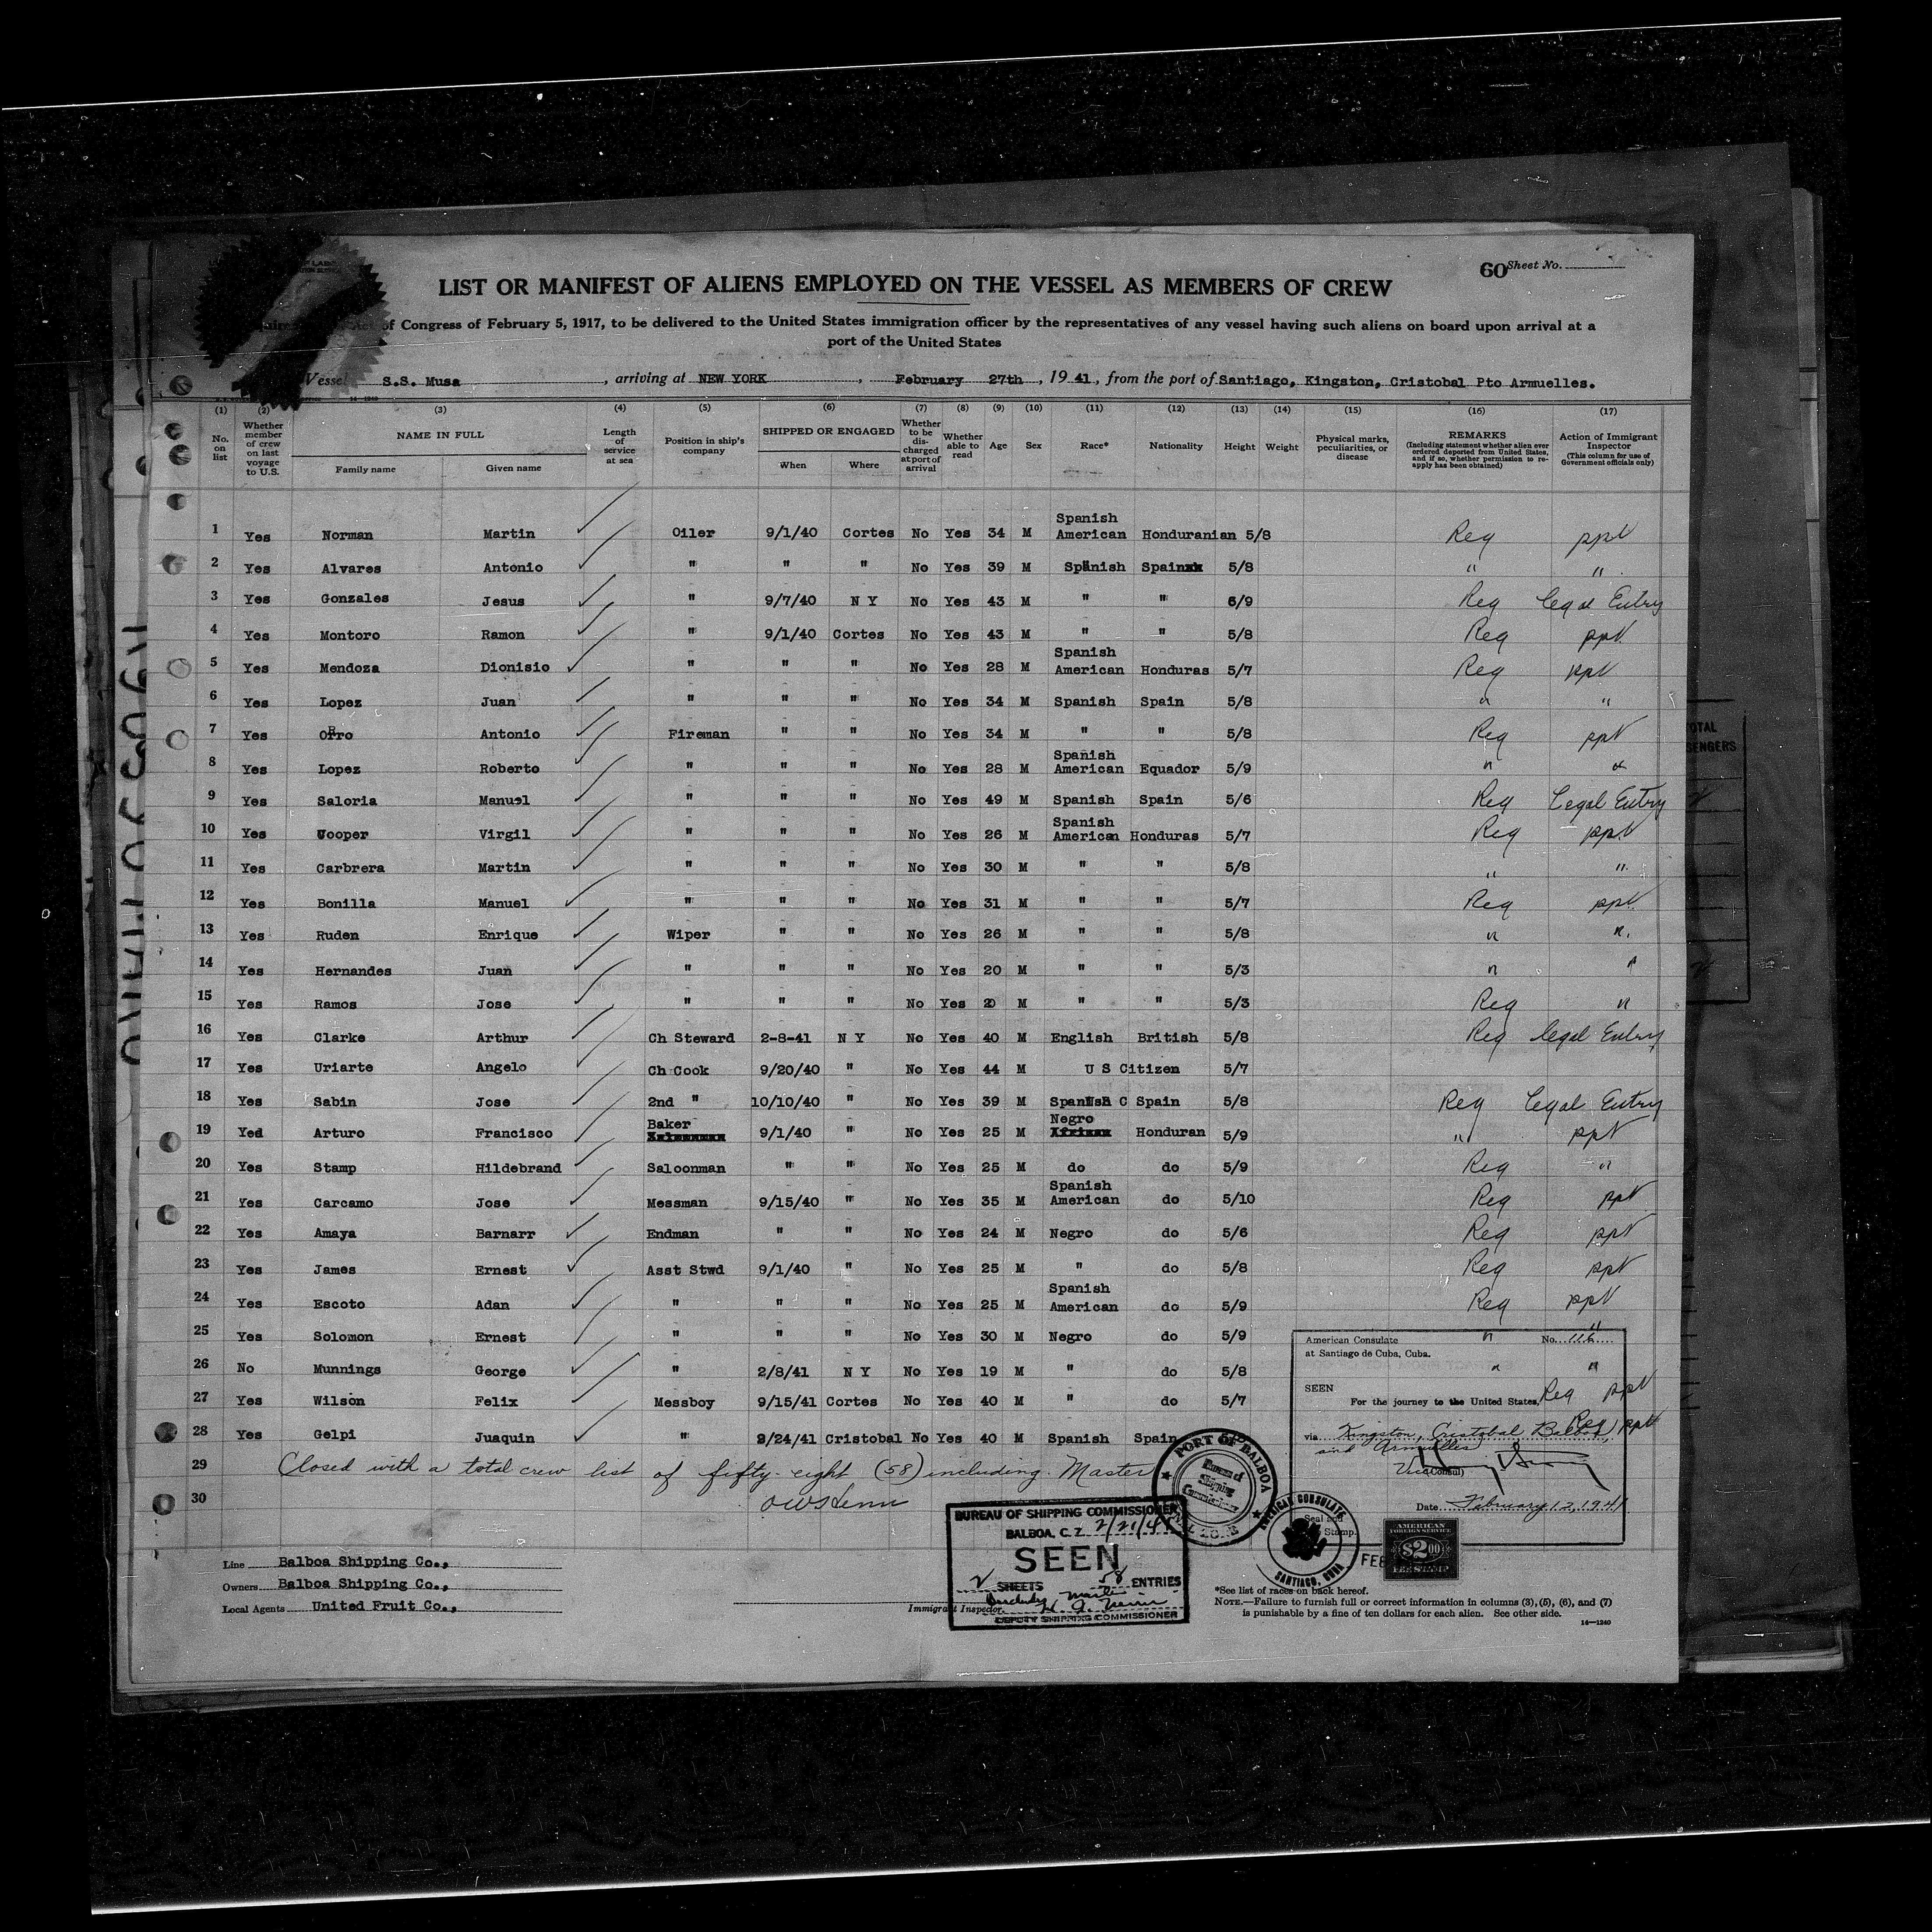 60 Sheet No.
LIST OR MANIFEST OF ALIENS EMPLOYED ON THE VESSEL AS MEMBERS OF CREW
of Congress of February 5, 1917, to be delivered to the United States immigration officer by the representatives of any vessel having such aliens on board upon arrival at a
port of the United States
Vessel S.S. Musa, arriving at NEW YORK, February 27th, 1941, from the port of Santiago, Kingston, Cristobal Pto Armuelles.
(1) (2) (3) (4) (5) (6) (7) (8) (9) (10) (11) (12) (13) (14) (15) (16) (17)
No. on list
Whether member of crew on last voyage to U.S.
NAME IN FULL
Family name Given name
Length of service at sea
Position in ship's company
SHIPPED OR ENGAGED
When Where
Whether to be discharged at port of arrival
Whether able to read
Age Sex Race* Nationality Height Weight
Physical marks, peculiarities, or disease
REMARKS
(Including statement whether alien ever ordered deported from United States, and if so, whether permission to re-apply has been obtained)
Action of Immigrant Inspector
(This column for use of Government officials only)
1 Yes Norman Martin Oiler 9/1/40 Cortes No Yes 34 M Spanish American Honduranian 5/8 Reg ppt
2 Yes Alvares Antonio " " " No Yes 39 M Spanish Spain 5/8 " "
3 Yes Gonzales Jesus " 9/7/40 N Y No Yes 43 M " " 6/9 Reg Legal Entry
4 Yes Montoro Ramon " 9/1/40 Cortes No Yes 43 M " " 5/8 Reg ppt
5 Yes Mendoza Dionisio " " " No Yes 28 M Spanish American Honduras 5/7 Reg ppt
6 Yes Lopez Juan " " " No Yes 34 M Spanish Spain 5/8 " "
7 Yes Orro Antonio Fireman " " No Yes 34 M " " 5/8 Reg ppt
8 Yes Lopez Roberto " " " No Yes 28 M Spanish American Equador 5/9 " "
9 Yes Saloria Manuel " " " No Yes 49 M Spanish Spain 5/6 Reg Legal Entry
10 Yes Cooper Virgil " " " No Yes 26 M Spanish American Honduras 5/7 Reg ppt
11 Yes Carbrera Martin " " " No Yes 30 M " " 5/8 " "
12 Yes Bonilla Manuel " " " No Yes 31 M " " 5/7 Reg ppt
13 Yes Ruden Enrique Wiper " " No Yes 26 M " " 5/8 " "
14 Yes Hernandes Juan " " " No Yes 20 M " " 5/3 " "
15 Yes Ramos Jose " " " No Yes 20 M " " 5/3 Reg "
16 Yes Clarke Arthur Ch Steward 2-8-41 N Y No Yes 40 M English British 5/8 Reg Legal Entry
17 Yes Uriarte Angelo Ch Cook 9/20/40 " No Yes 44 M U S Citizen 5/7
18 Yes Sabin Jose 2nd " 10/10/40 " No Yes 39 M Spanish C Spain 5/8 Reg Legal Entry
19 Yed Arturo Francisco Baker 9/1/40 " No Yes 25 M Negro Honduran 5/9 " ppt
20 Yes Stamp Hildebrand Saloonman " " No Yes 25 M do do 5/9 Reg "
21 Yes Carcamo Jose Messman 9/15/40 " No Yes 35 M Spanish American do 5/10 Reg ppt
22 Yes Amaya Barnarr Endman " " No Yes 24 M Negro do 5/6 Reg ppt
23 Yes James Ernest Asst Stwd 9/1/40 " No Yes 25 M " do 5/8 Reg ppt
24 Yes Escoto Adan " " " No Yes 25 M Spanish American do 5/9 Reg ppt
25 Yes Solomon Ernest " " " No Yes 30 M Negro do 5/9 " "
26 No Munnings George " 2/8/41 N Y No Yes 19 M " do 5/8 " "
27 Yes Wilson Felix Messboy 9/15/41 Cortes No Yes 40 M " do 5/7 Reg ppt
28 Yes Gelpi Juaquin " 2/24/41 Cristobal No Yes 40 M Spanish Spain Reg ppt
29 Closed with a total crew list of fifty-eight (58) including Master
30
American Consulate No. 116
at Santiago de Cuba, Cuba.
SEEN
For the journey to the United States,
via Kingston, Cristobal Balboa,
and Armuelles
Vice Consul
Date February 12, 1941
Seal and Stamp.
AMERICAN CONSULATE SANTIAGO, CUBA
FEB
AMERICAN FOREIGN SERVICE $2.00 FEE STAMP
PORT OF BALBOA
Bureau of Shipping Commissioner
CANAL ZONE
BUREAU OF SHIPPING COMMISSIONER
BALBOA, C. Z. 2/21/41
SEEN
2 SHEETS 58 ENTRIES
DEPUTY SHIPPING COMMISSIONER
Line Balboa Shipping Co.,
Owners Balboa Shipping Co.,
Local Agents United Fruit Co.,
Immigrant Inspector.
*See list of races on back hereof.
NOTE.—Failure to furnish full or correct information in columns (3), (5), (6), and (7)
is punishable by a fine of ten dollars for each alien. See other side.
14—1240
TOTAL